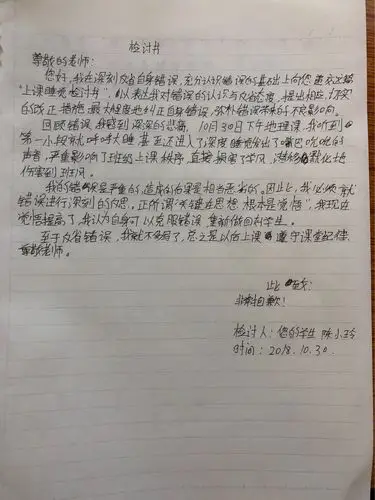 检讨书
尊敬的老师:
您好,我在深刻反省自身错误,充分认识错误的基础上向您递交这篇
"上课睡觉检讨书",以表达我对错误的认识与反省态度,提出相应、切实
的改正措施,最大程度地纠正自身错误,弥补错误带来的不良影响。
回顾错误,我感到深深的悲哀,10月30日下午地理课,我听到
第一小段就呼呼大睡,甚至还进入了深度睡觉给出了嘴巴
声音,严重影响了班级上课秩序,直接损害了学风,潜移默化地
伤害到班风。
我的错误是严重的,造成的后果是相当恶劣的。因此,我必须就
错误进行深刻的反思,正所谓"关键在思想,根本是觉悟",我现在
觉悟提高了,我认为自身可以克服错误,重新做回好学生。
至于反省错误,我就不多写了,总之是以后上课遵守课堂纪律,
尊敬老师。
此致:
非常抱歉!
检讨人:您的学生 陈小玲
时间:2018.10.30.